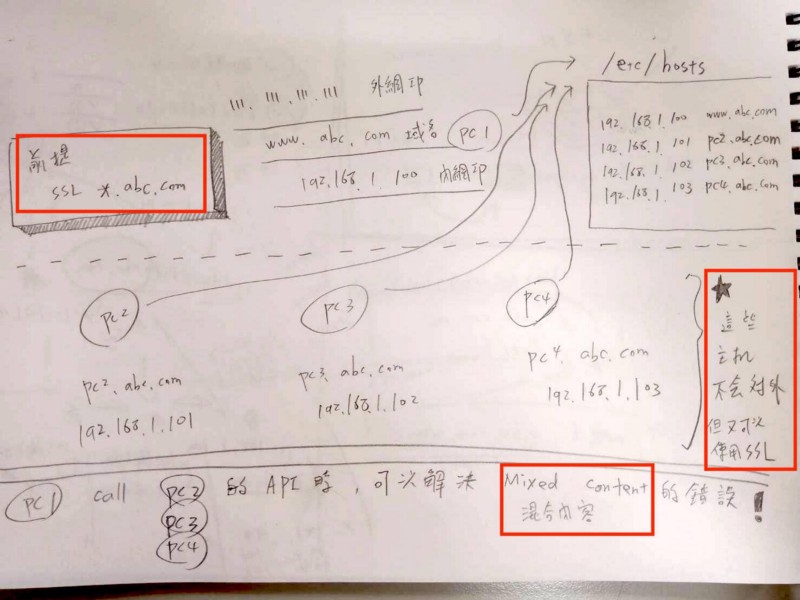 111.111.111.111 外網IP
www.abc.com 域名
PC1
192.168.1.100 內網IP
前提
SSL *.abc.com
/etc/hosts
192.168.1.100 www.abc.com
192.168.1.101 pc2.abc.com
192.168.1.102 pc3.abc.com
192.168.1.103 pc4.abc.com
pc2
pc2.abc.com
192.168.1.101
pc3
pc3.abc.com
192.168.1.102
pc4
pc4.abc.com
192.168.1.103
★
這些
主机
不会对外
但又可以
使用SSL
PC1 call pc2 的 API 時，可以解決 Mixed content 的錯誤！
pc3
混合內容
pc4